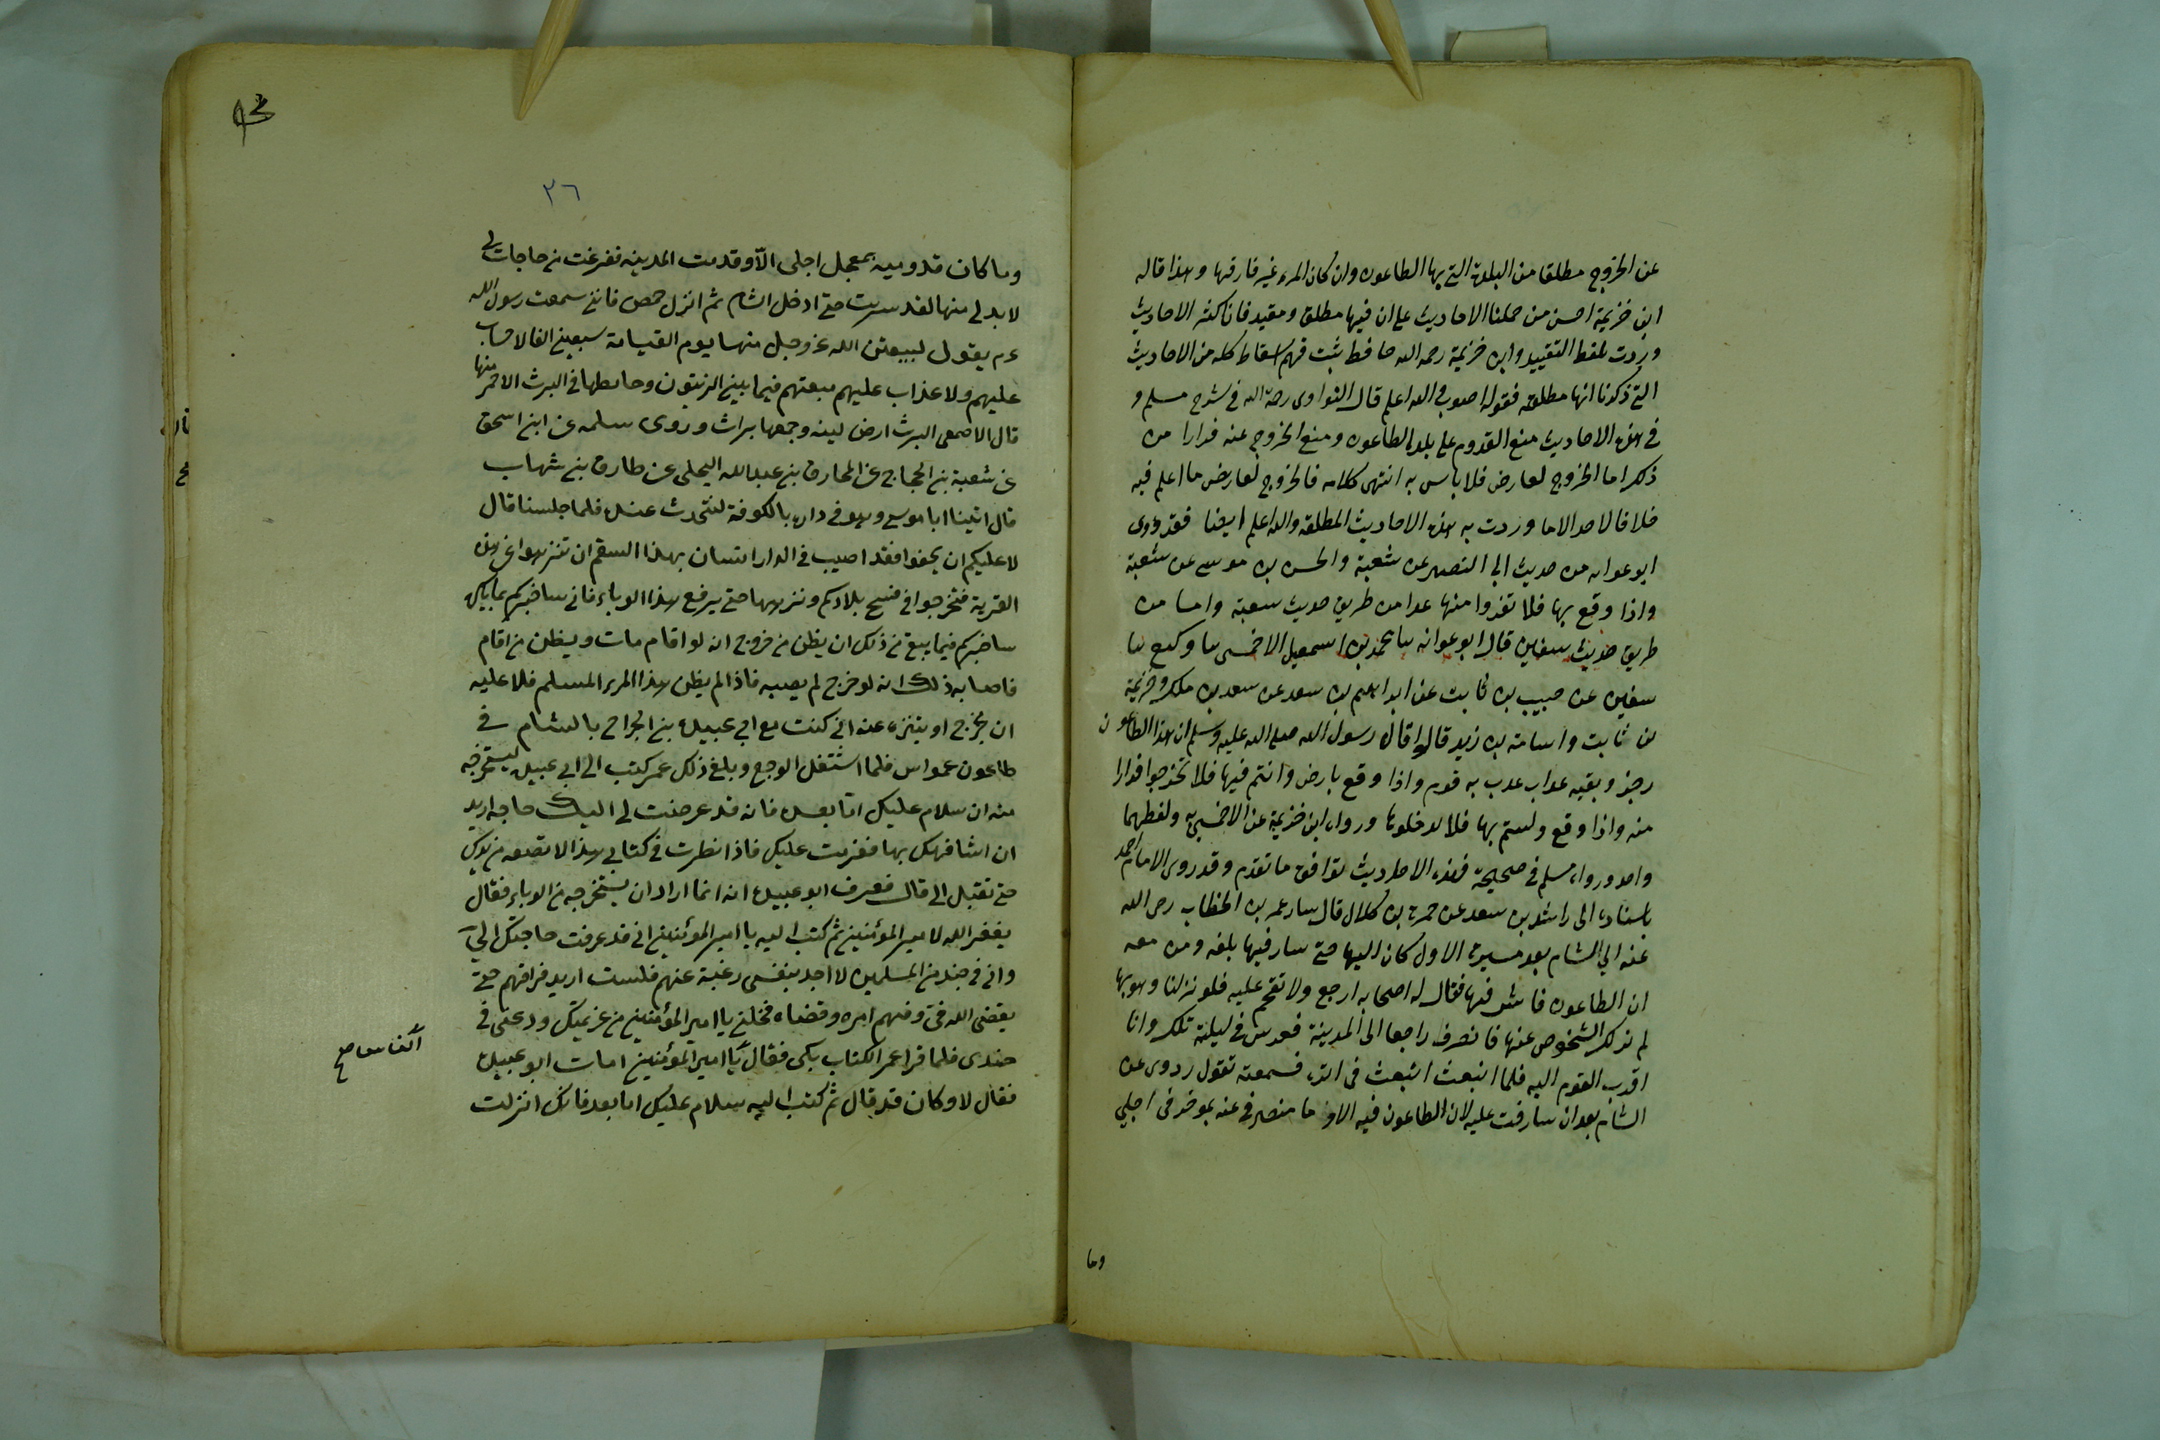 عن الخروج مطلقا من البلدة التي بها الطاعون وان كان المرء غير فارقها وهذا قاله
ابن خزيمة احسن من حملنا الاحاديث على ان فيها مطلق ومقيد فانا كثر الاحاديث
وردت بلفظ التقييد وابن خزيمة رحمه الله حافظ ثبت فهم اسقاط كله من الاحاديث
التي ذكرنا انها مطلقة فقوله اصوب والله اعلم قال النواوى رحمه الله في شرح مسلم و
في هذه الاحاديث منع القدوم على بلد الطاعون ومنع الخروج عنه فرارا من
ذلك اما الخروج لعارض فلا باس به انتهى كلامه فالخروج لعارض ما اعلم فيه
خلافا لاحد الا ما وردت به هذه الاحاديث المطلقة والله اعلم ايضا فقد روى
ابو عوانه من حديث ابي النضر عن شعبة والحسن بن موسى عن شعبة
واذا وقع بها فلا تفروا منها عدا من طريق حديث شعبة واما من
طريق حديث سفين قال ابو عوانه سا محمد بن اسمعيل الاحمسى سا وكيع سا
سفين عن حبيب بن ثابت عن ابراهيم بن سعد عن سعد بن ملك وخزيمة
بن ثابت واسامة بن زيد قالوا قال رسول الله صلى الله عليه وسلم ان هذا الطاعون
رجز وبقيه عذاب عذب به قوم واذا وقع بارض وانتم فيها فلا تخرجوا فرارا
منه واذا وقع ولستم بها فلا تدخلوها ورواه ابن خزيمة عن الاحمسى به ولفظهما
واحد ورواه مسلم في صحيحه فهذه الاحاديث توافق ما تقدم وقد روى الامام احمد
باسناده الى راشد بن سعد عن حمرة بن كلال قال سار عمر بن الخطاب رضى الله
عنه الى الشام بعد مسيره الاول كان اليها حتى سار فيها بلغه ومن معه
ان الطاعون فاش فيها فقال له اصحابه ارجع ولا تقحم عليه فلو نزلتا وهو بها
لم نر لك الشخوص عنها فانصرف راجعا الى المدينة فعرس في ليلته تلك وانا
اقرب القوم اليه فلما انبعث انبعث في اثره فسمعته تقول ردوى عن
الشام بعد ان سارفت عليه لان الطاعون فيه الا وما منصرفى عنه بموخر في اجلى
وما
٢٦
وما كان قدوميه بمعجل اجلى الا وقدمت المدينه ففرغت من حاجات لى
لا بد لى منها لقد سرت حتى ادخل الشام ثم انزل حمص فاني سمعت رسول الله
عم يقول ليبعثن الله عز وجل منها يوم القيامة سبعين الفا لا حساب
عليهم ولا عذاب عليهم مبعثهم فيما بين الزيتون وحائطها في البرث الاحمر منها
قال الاصمعى البرث ارض لينه وجمعها براث وروى سلمه عن ابن اسحق
عن شعبة بن الحجاج عن المخارق بن عبد الله البجلى عن طارق بن شهاب
قال اتينا ابا موسى وهو في داره بالكوفة لنتحدث عنده فلما جلسنا قال
لا عليكم ان تخفوا فقد اصيب في الدار انسان بهذا السقم ان تنزهوا عن هذه
القرية فتخرجوا في فسح بلادكم ونزهها حتى يرفع هذا الوباء فاني ساخبركم بما
ساخبركم فيما يبتغ من ذلك ان يظن من خروج انه لو اقام مات ويظن من اقام
فاصابه ذلك انه لو خرج لم يصبه فاذا لم يظن هذا المرء المسلم فلا عليه
ان يخرج او يتنزه عنه اني كنت مع ابي عبيدة بن الجراح بالشام في
طاعون عمواس فلما اشتعل الوجع وبلغ ذلك عمر كتب الى ابي عبيدة ليستخرجه
منه ان سلام عليك اما بعد فانه قد عرضت لى اليك حاجه اريد
ان اشافهك بها فعزمت عليك فاذا نظرت في كتابي هذا الا تضعه من يدك
حتى تقبل الى قال فعرف ابو عبيدة انه انما اراد ان يستخرجه من الوباء فقال
يغفر الله لامير المؤمنين ثم كتب اليه يا امير المؤمنين اني قد عرفت حاجتك الى
واني في جند من المسلمين لا اجد بنفسى رغبة عنهم فلست اريد فراقهم حتى
يقضى الله في وفيهم امره وقضاه فخلنى يا امير المؤمنين من عزيمتك ودعنى في
جندى فلما قرا عمر الكتاب بكى فقال يا امير المؤمنين امات ابو عبيدة
فقال لا وكان قد قال ثم كتب اليه سلام عليك اما بعد فانك انزلت
الناس صح